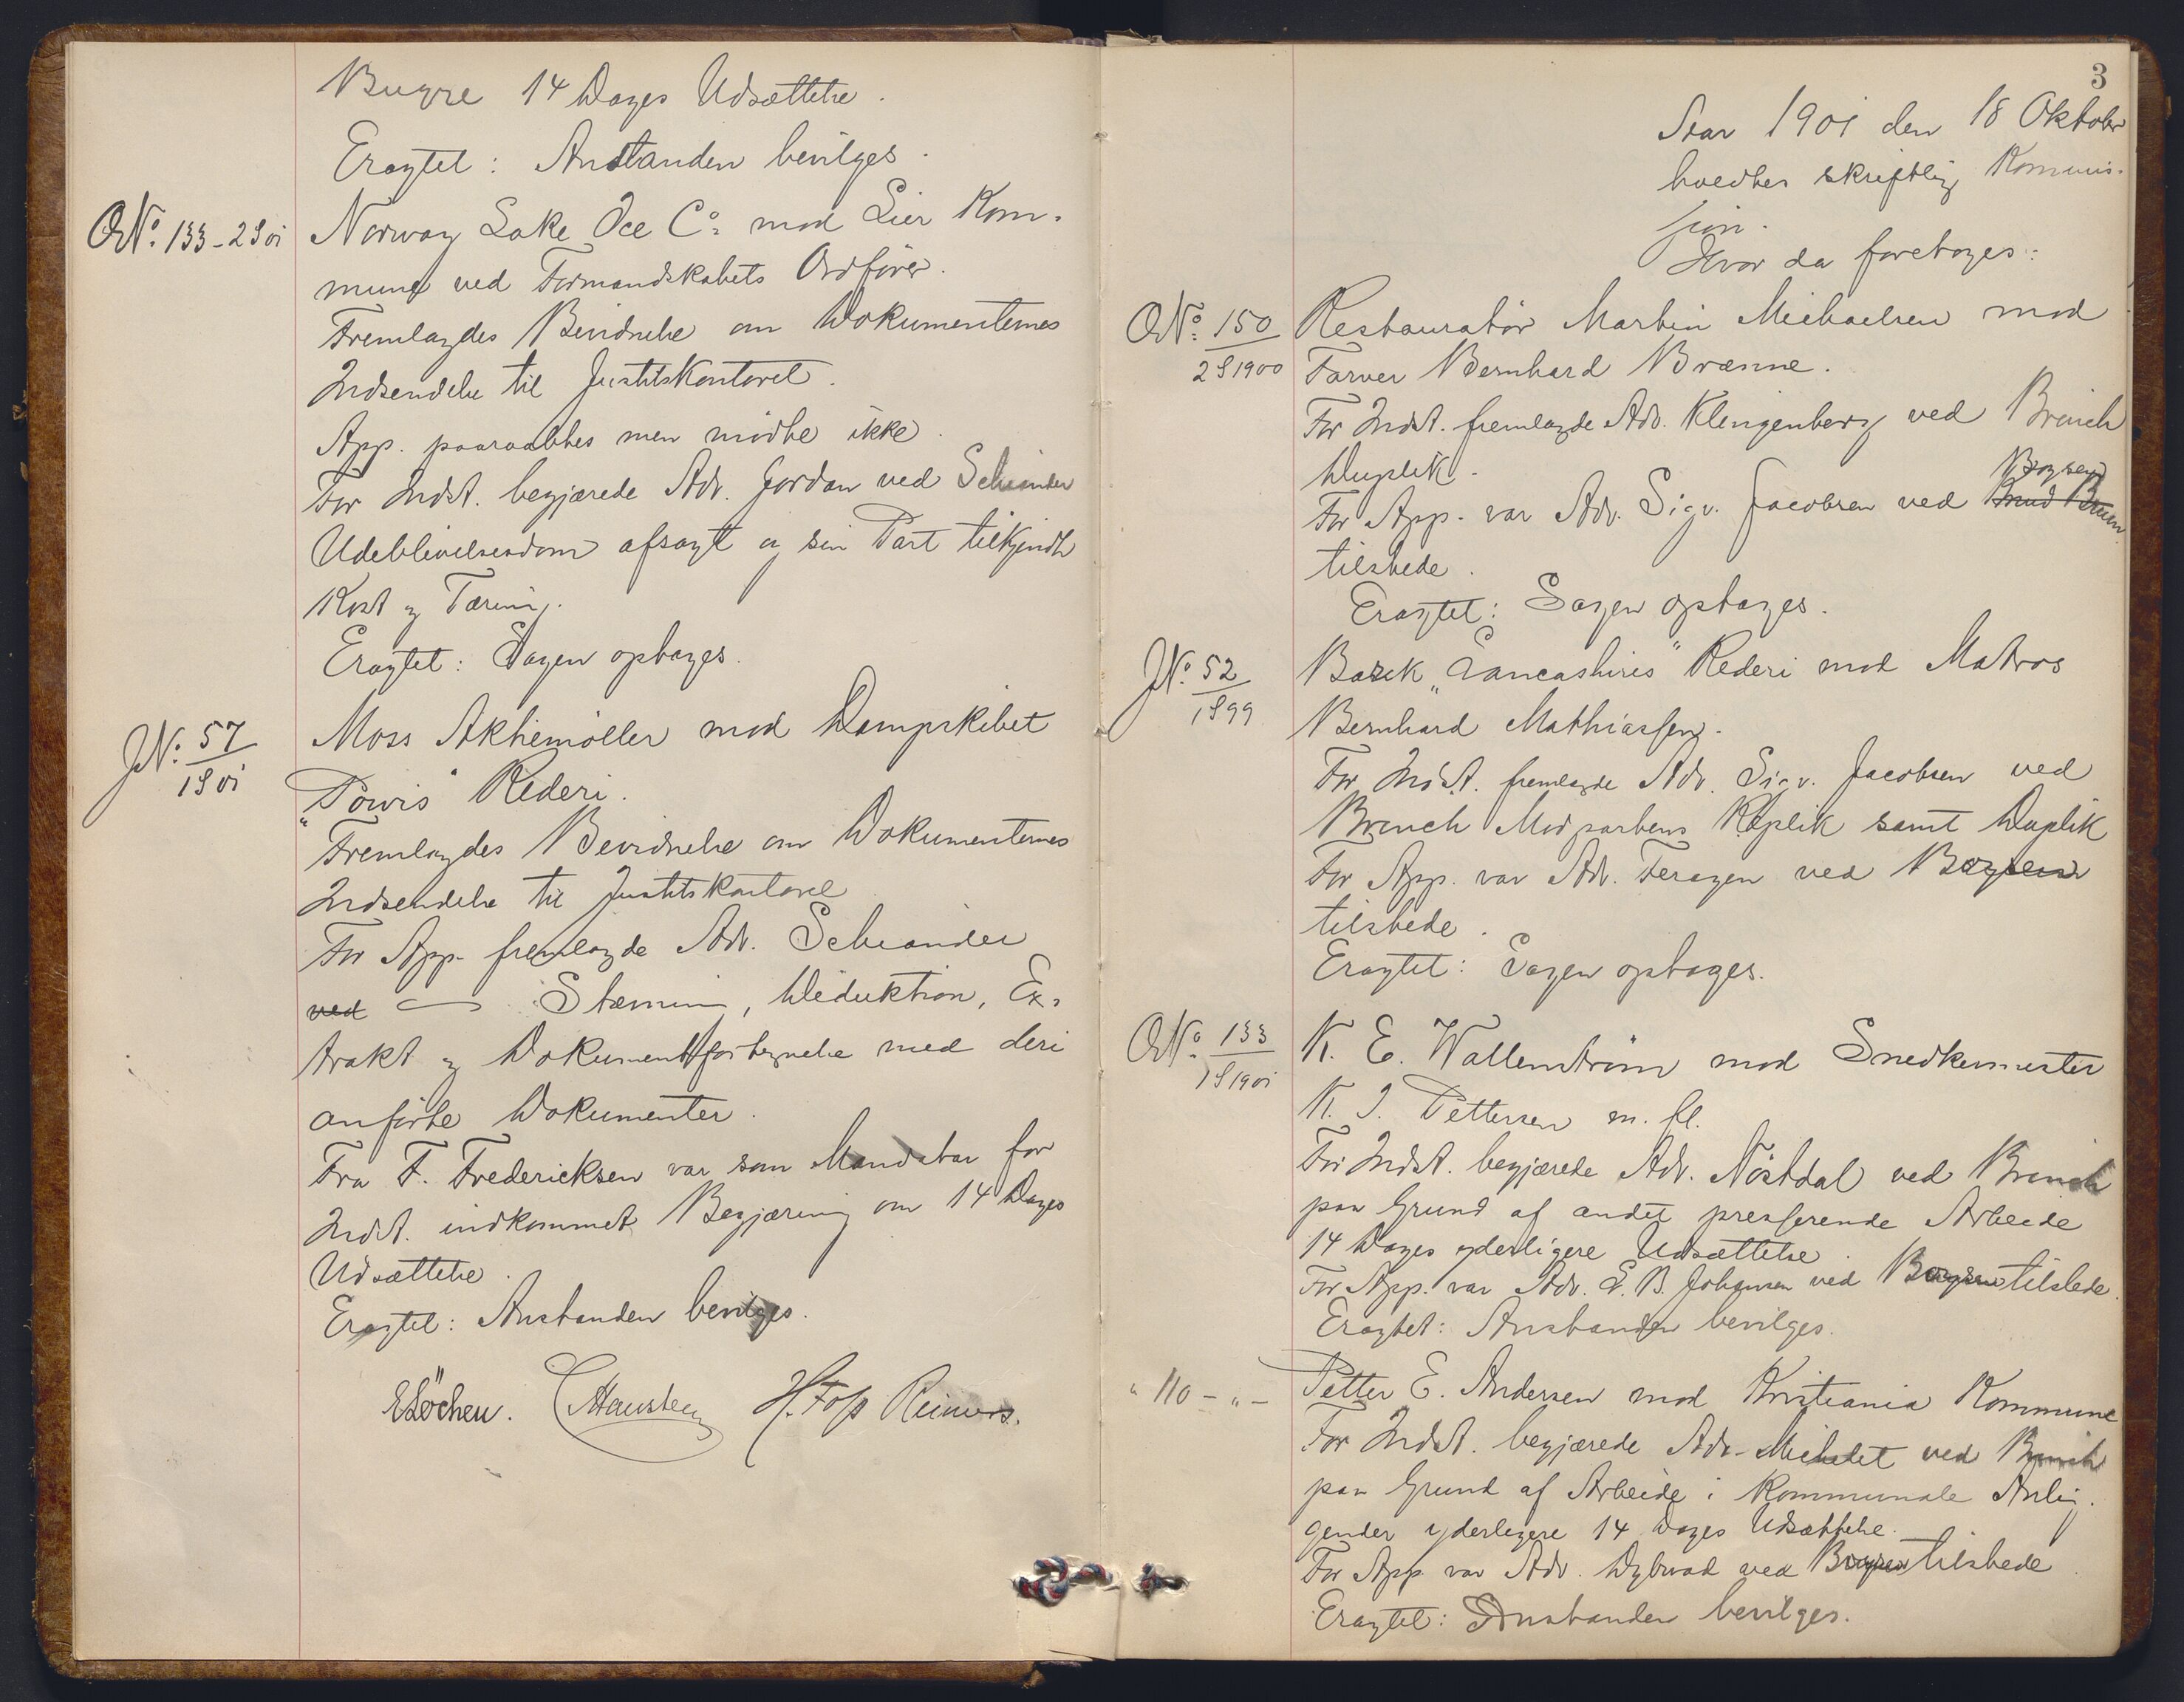 Bugge 14 Dages Udsættelse.
Eragtet: Anstanden bevilges.
ONo. 133-2S01 Norway Lake Ice Co. mod Lier Kom-
mune ved Formandskabets Ordfører.
Fremlagdes Bevidnelse om Dokumenternes
Indsendelse til Justitskontoret.
App. paaraabtes men mødte ikke.
For Indst. begjærede Adv. Jordan ved Schiander
Udeblivelsesdom afsagt og sin Part tilkjendt
Kost og Tæring.
Eragtet: Sagen optages.
JNo. 57/1S01 Moss Aktiemøller mod Dampskibet
"Powis" Rederi.
Fremlagdes Bevidnelse om Dokumenternes
Indsendelse til Justitskontoret
For App. fremlagde Adv. Schiander
ved — Stævning, Deduktion, Ex-
trakt og Dokumentfortegnelse med deri
anførte Dokumenter.
Fra F. Fredericksen var som Mandatar for
Indst. indkommet Begjæring om 14 Dages
Udsættelse.
Eragtet: Anstanden bevilges.
E Løchen. Hansteen H. Foss Reimers.
3
Aar 1901 den 18 Oktober
holdtes skriftlig Kommis-
sion.
Hvor da foretoges:
ONo. 150/2S1900 Restauratør Martin Michaelsen mod
Farver Bernhard Brænne.
For Indst. fremlagde Adv. Klingenberg ved Brinch
Duplik.
Boysen
For App. var Adv. Sigv. Jacobsen ved
tilstede.
Eragtet: Sagen optages.
JNo. 52/1S99 Bark "Lancashires" Rederi mod Matros
Bernhard Mathiassen.
For Indst. fremlagde Adv. Sigv. Jacobsen ved
Brinch Modpartens Replik samt Duplik
For App. var Adv. Feragen ved Boysen
tilstede.
Eragtet: Sagen optages.
ONo. 133/1S1901 K. E. Wallenstrøm mod Snedkermester
K. J. Pettersen m. fl.
For Indst. begjærede Adv. Nöstdal ved Brinch
paa Grund af andet presserende Arbeide
14 Dages yderligere Udsættelse.
For App. var Adv. E. B. Johansen ved Boysen tilstede.
Eragtet: Anstanden bevilges.
" 110 - " - Petter E. Andersen mod Kristiania Kommune
For Indst. begjærede Adv. Michelet ved Brinch
paa Grund af Arbeide i kommunale Anlig-
gender yderligere 14 Dages Udsættelse.
For App. var Adv. Dybwad ved Boysen tilstede
Eragtet: Anstanden bevilges.